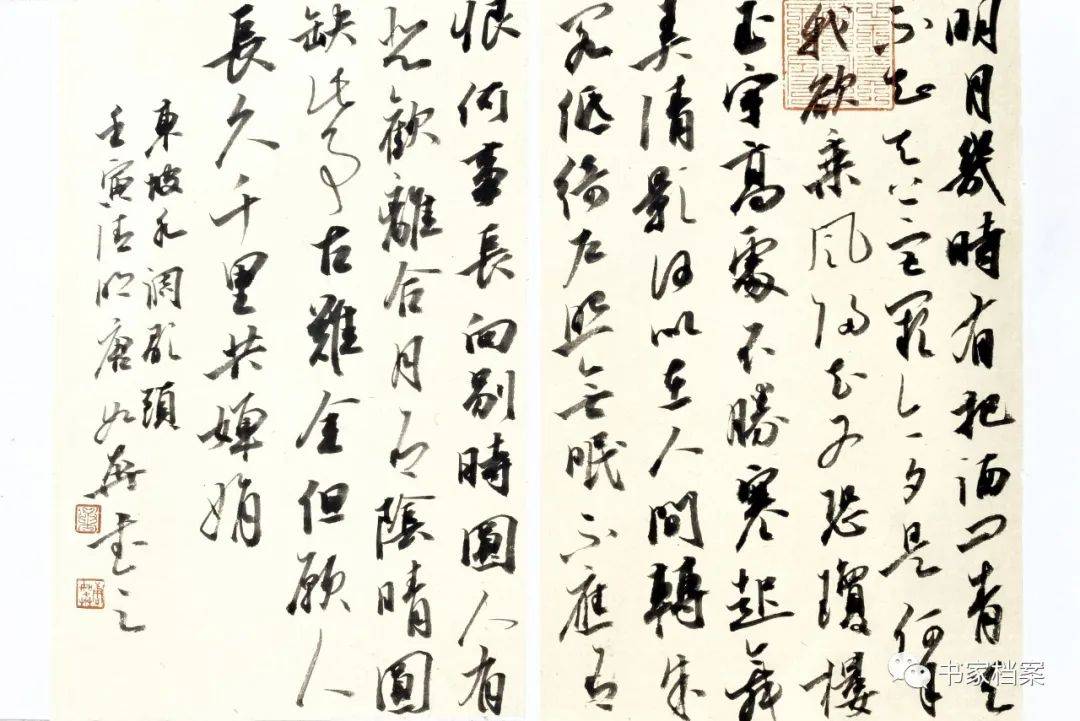 明月幾時有把酒問青天
不知天上宮闕今夕是何年
我欲乘風歸去又恐瓊樓
玉宇高處不勝寒起舞
弄清影何似在人間轉朱
閣低綺戶照無眠不應有
恨何事長向別時圓人有
悲歡離合月有陰晴圓
缺此事古難全但願人
長久千里共嬋娟
東坡水調歌頭
壬寅清明唐書之
书家档案